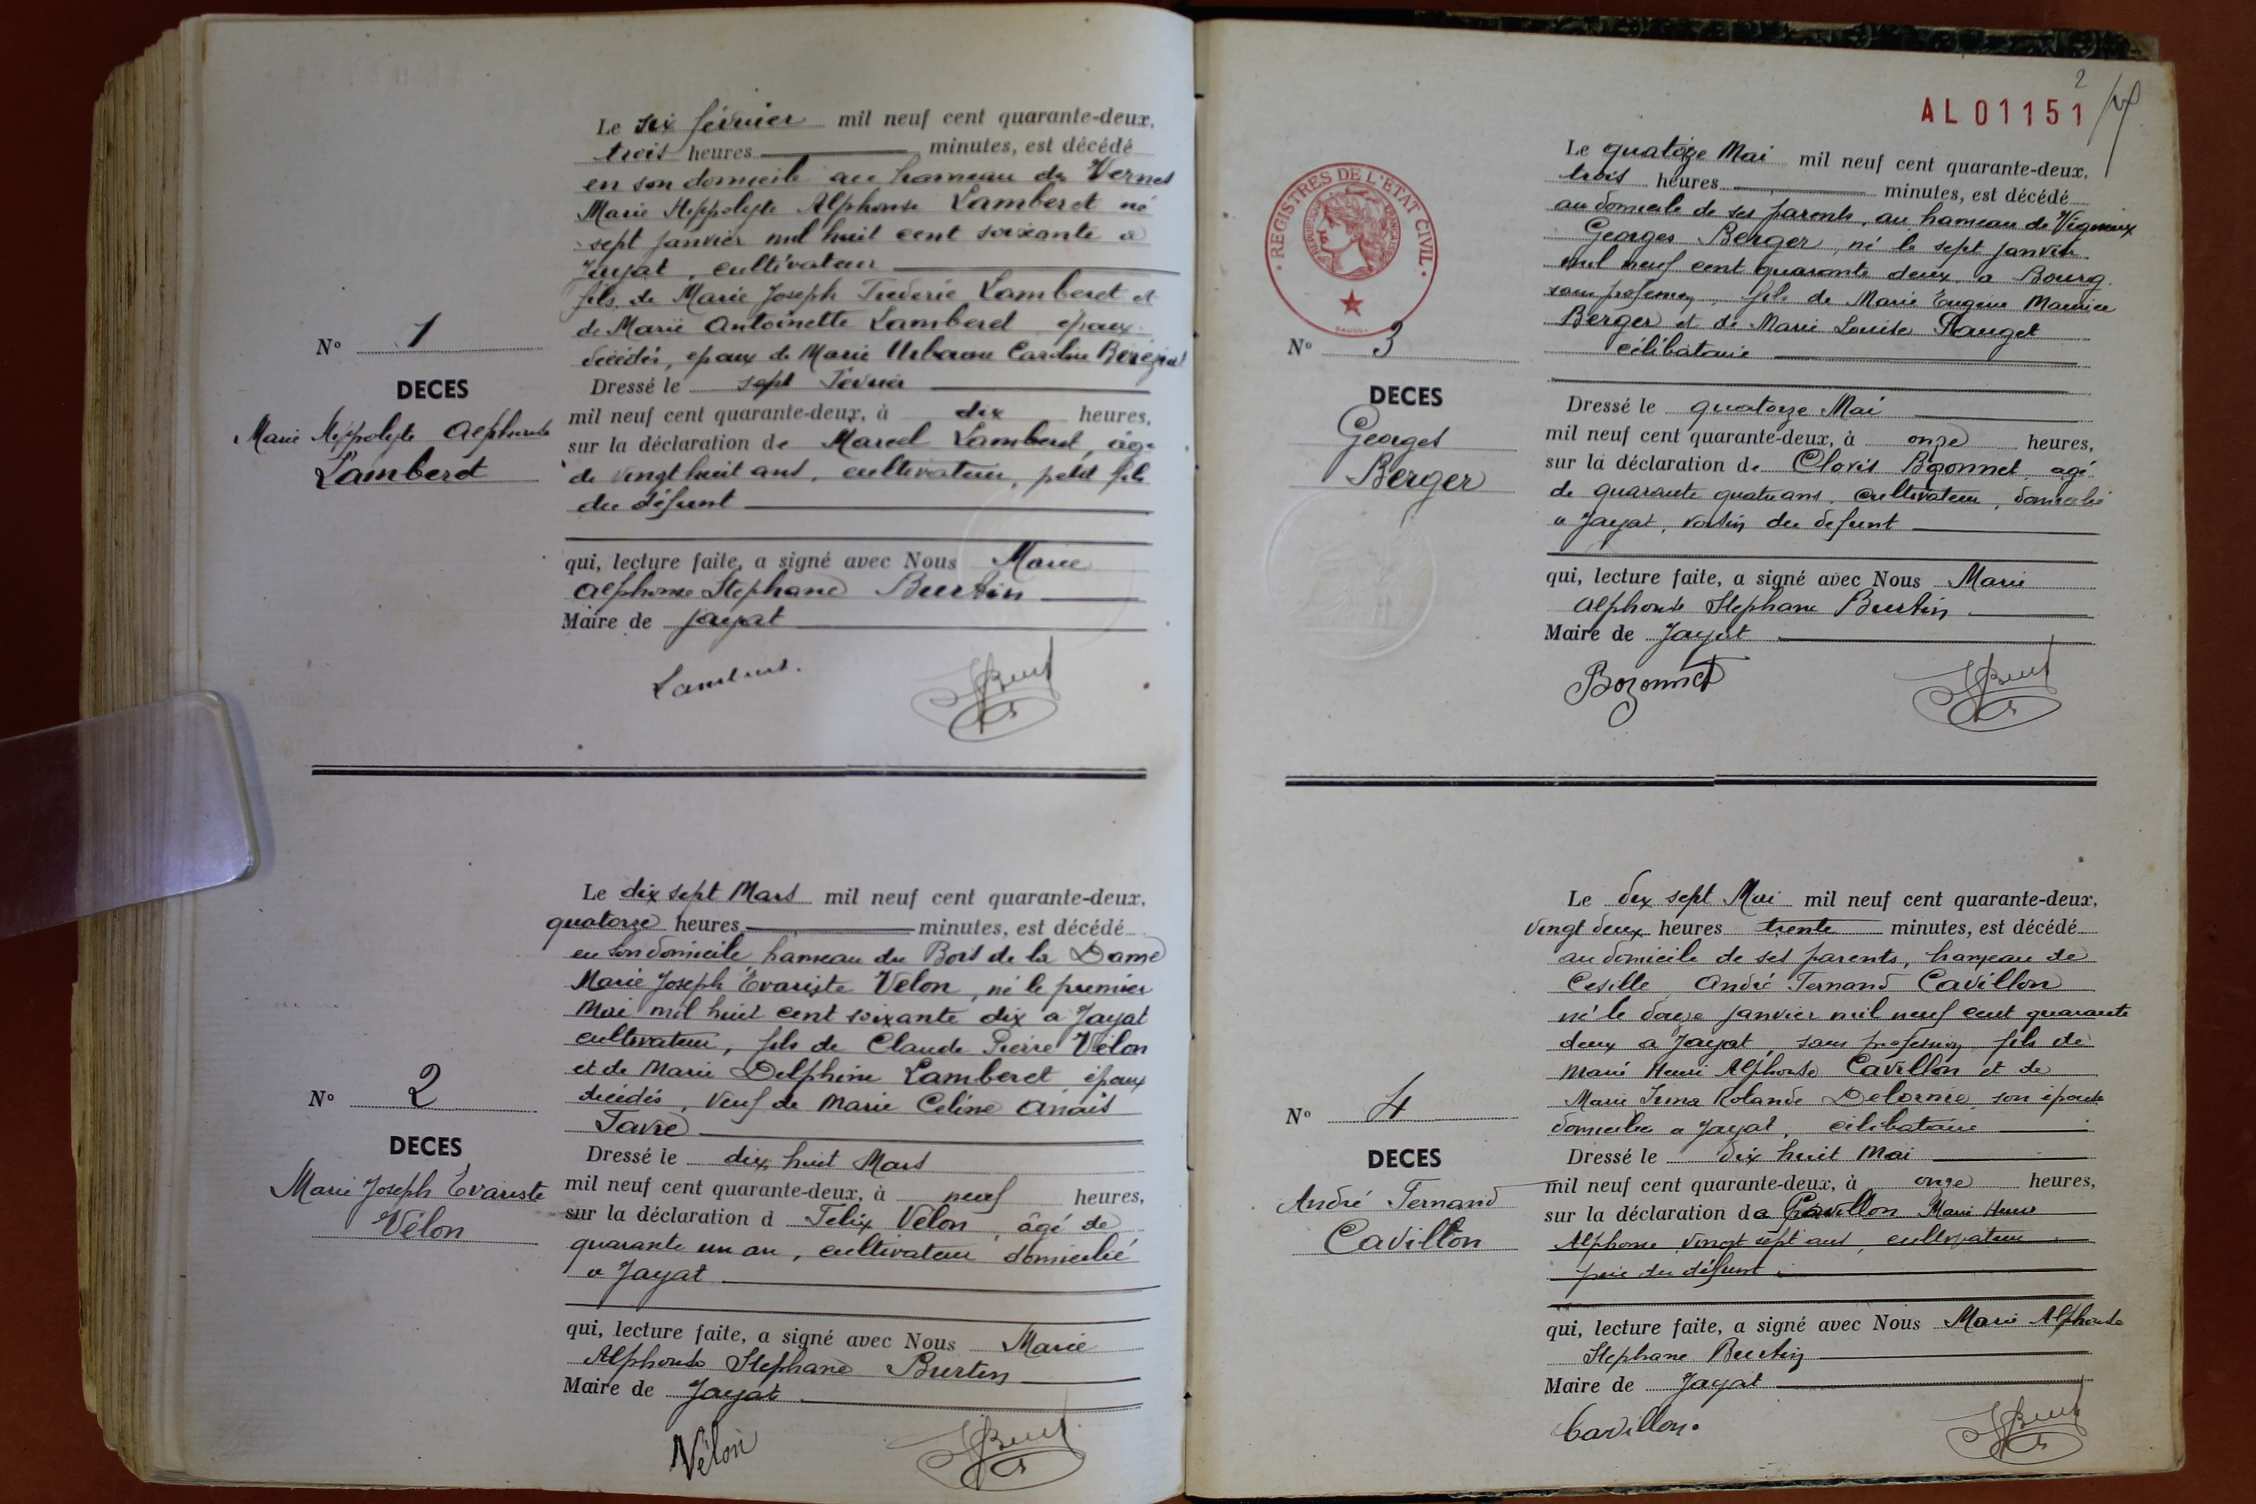 Le six février mil neuf cent quarante-deux,
trois heures minutes, est décédé
en son domicile au hameau du Vernet
Marie Hippolyte Alphonse Lamberet né
sept janvier mil huit cent soixante a
Jayat, cultivateur
fils de Marie Joseph Frederic Lamberet et
de Marie Antoinette Lamberet epoux
décédés, epoux de Marie Caroline
Nº 1
DECES
Marie Hippolyte Alphonse
Lamberet
Dressé le sept Février
mil neuf cent quarante-deux, à dix heures,
sur la déclaration de Marcel Lamberet, âgé
de vingt huit ans, cultivateur, petit fils
du défunt
qui, lecture faite, a signé avec Nous Marie
Alphonse Stephane Burtin
Maire de Jayat
Lamberet.
Le dix sept Mars mil neuf cent quarante-deux,
quatorze heures minutes, est décédé
en son domicile hameau du Bois de la Dame
Marie Joseph Évariste Velon, né le premier
Mai mil huit cent soixante dix a Jayat
cultivateur, fils de Claude Pierre Vélon
et de Marie Delphine Lamberet, époux
décédés, veuf de Marie Celine Anaïs
Favre
Nº 2
DECES
Marie Joseph Évariste
Vélon
Dressé le dix huit Mars
mil neuf cent quarante-deux, à neuf heures,
sur la déclaration d Felix Velon, âgé de
quarante un an, cultivateur domicilié
a Jayat
qui, lecture faite, a signé avec Nous Marie
Alphonse Stephane Burtin
Maire de Jayat
Vélon
2
AL 01151
REGISTRES DE L'ETAT CIVIL
Le quatorze Mai mil neuf cent quarante-deux,
trois heures minutes, est décédé
au domicile de ses parents, au hameau de
Georges Berger, né le sept janvier
mil neuf cent quarante deux a Bourg
sans profession, fils de Marie Eugène Maurice
Berger et de Marie Louise Rauget
célibataire
Nº 3
DECES
Georges
Berger
Dressé le quatorze Mai
mil neuf cent quarante-deux, à onze heures,
sur la déclaration de Clovis Bozonnet, agé
de quarante quatre ans, cultivateur, domicilié
a Jayat, voisin du defunt
qui, lecture faite, a signé avec Nous Marie
Alphonse Stephane Burtin
Maire de Jayat
Bozonnet
Le dix sept Mai mil neuf cent quarante-deux,
vingt deux heures trente minutes, est décédé
au domicile de ses parents, hameau de
Cesille André Fernand Cavillon
né le douze janvier mil neuf cent quarante
deux a Jayat, sans profession, fils de
Marie Henri Alphonse Cavillon et de
Marie Irma Rolande Delorme, son épouse
domicilié a Jayat, célibataire
Nº 4
DECES
André Fernand
Cavillon
Dressé le dix huit Mai
mil neuf cent quarante-deux, à onze heures,
sur la déclaration de Cavillon Marie Henri
Alphonse vingt sept ans, cultivateur
père du défunt
qui, lecture faite, a signé avec Nous Marie Alphonse
Stephane Burtin
Maire de Jayat
Cavillon.